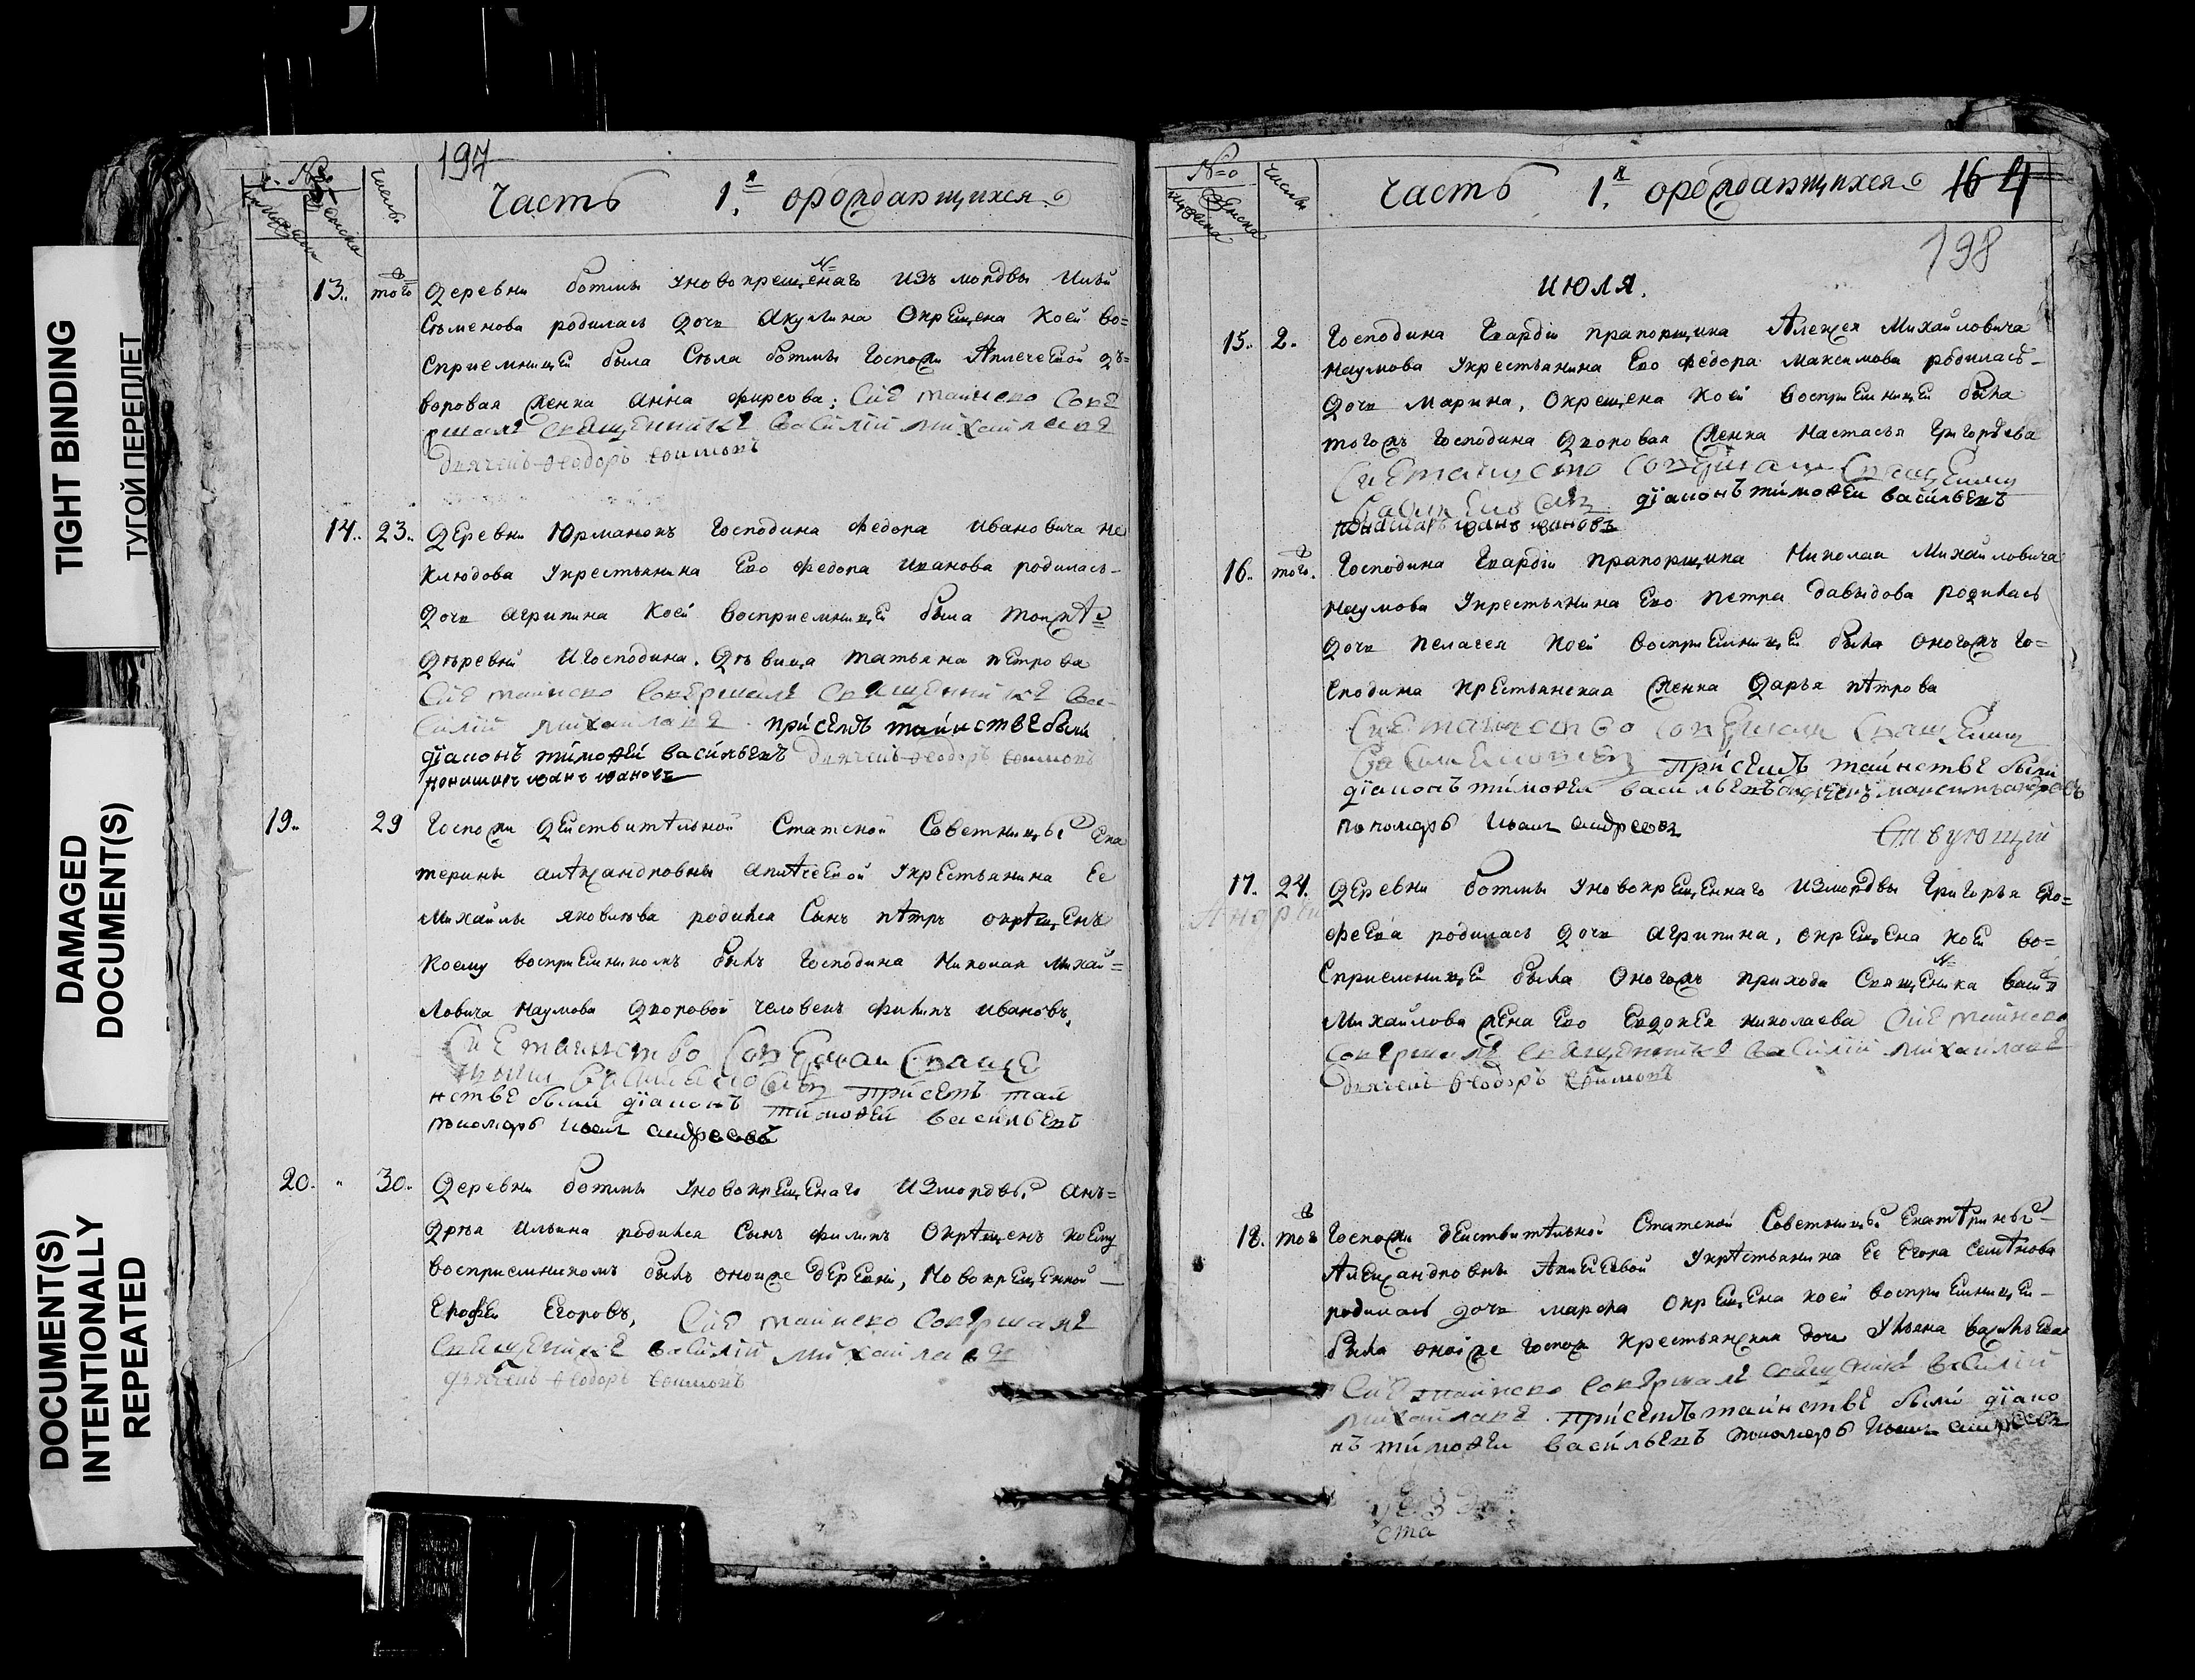 TIGHT BINDING
ТУГОЙ ПЕРЕПЛЕТ
DAMAGED
DOCUMENT(S)
DOCUMENT(S)
INTENTIONALLY
REPEATED
197
№
числы
Часть 1.я орождающихся
13. того Деревни ботмы уновокрещенаго изъ мордвы Ильи
Съменова родилась дочь Акулина Окрещена коей во=
сприемницей была Съла ботмы Госпожи Аплечевой дъ=
воровая женка Анна фирсова; Сие таинсво Сове
ршалъ священникъ Василий михаиловъ
дьячекъ Феодоръ
14. 23. Деревни Юрмановъ Господина Федора Ивановича не
клюдова Укрестьянина Ево Федора Иванова родилась
дочь агрипина коей восприемницей была тоижъ
дъревни Игосподина. Дъвица татьяна петрова
Сие таинсво совершалъ священникъ Ва
силий михаиловъ присемъ таинстве были
дiаконъ тимофей васильевъ дьячекъ Феодоръ
пономарь иванъ ивановъ
19. 29 Госпожи Действительной Статской Советницы Ека
терины александровны апличеевой Укрестьянина Ее
Михаилы яковлева родился Сынъ петръ окрещенъ
Коему восприемникомъ былъ Господина Николая Михай=
ловича Наумова дворовой человекъ филипъ ивановъ.
Сие таинство совершал Свяще
присемъ таи
нстве были дiаконъ тимофей васильевъ
пономарь Иванъ андреевъ
20. 30. Деревни ботмы Уновокрещенаго Измордвы анъ=
дръя Ильина родился Сынъ филипъ Окрещенъ коему
восприемникомъ былъ оноиже деревни, новокрещенной
Ерофеи Егоровъ, Сие таинсво совершалъ
священникъ василий михаиловъ
дьячекъ Феодоръ
№
женска
числы
Часть 1.я орождающихся 164
198
ИЮЛЯ.
15. 2. Господина Гвардiи прапорщика Алексея Михаиловича
наумова Укрестьянина Ево Федора Максимова родилась
дочь марина, Окрещена Коей восприемницей была
тогожъ Господина дворовая женка Настасья Григорьева
Сие таинство совершал Священник
дiаконъ тимофеи васильевъ
пономарь иванъ ивановъ
16. того. Господина Гвардiи прапорщика Николая Михаиловича
наумова Укрестьянина Ево петра давыдова родилась
дочь пелагея коей восприемницей была оногожъ Го=
сподина крестьянская женка Дарья петрова
Сие таинство совершал Священник
присемъ таинстве были
дiаконъ тимофеи васильевъ дьячекъ максимъ андреевъ
пономарь Иванъ андреевъ
17. 24. Деревни ботмы Уновокрещеннаго Измордвы Григорья Еро=
феева родилась дочь агрипина, окрещена коей во=
сприемницей была Оногожъ прихода Священика васил
Михаилова жена Ево Евдокея николаева Сие таинсво
совершалъ священникъ василий михаиловъ
дьячекъ Феодоръ
18. того Госпожи действительной Статской Советницы Екатерины
Александровны Апличеевой Укрестьянина Ее Егора семенова
родилась дочь марфа Окрещена коей восприемницей
была оноиже госпож крестьянская дочь Ульяна васильева
Сие таинсво совершалъ священикъ василий
михаиловъ присемъ таинстве были дiако
нъ тимофеи васильевъ пономарь Иванъ андреевъ
ста